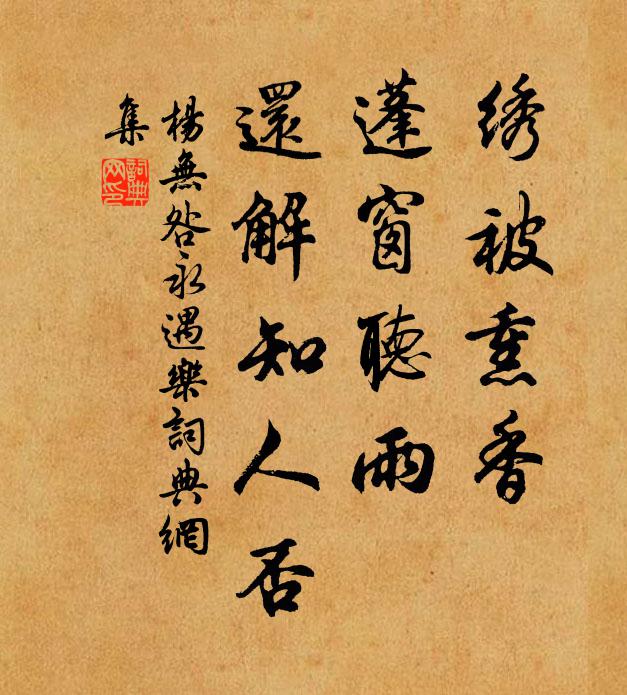 绣被熏香
蓬窗聽雨
還解知人否
楊無咎永遇樂詞典網
集
詞典
网印